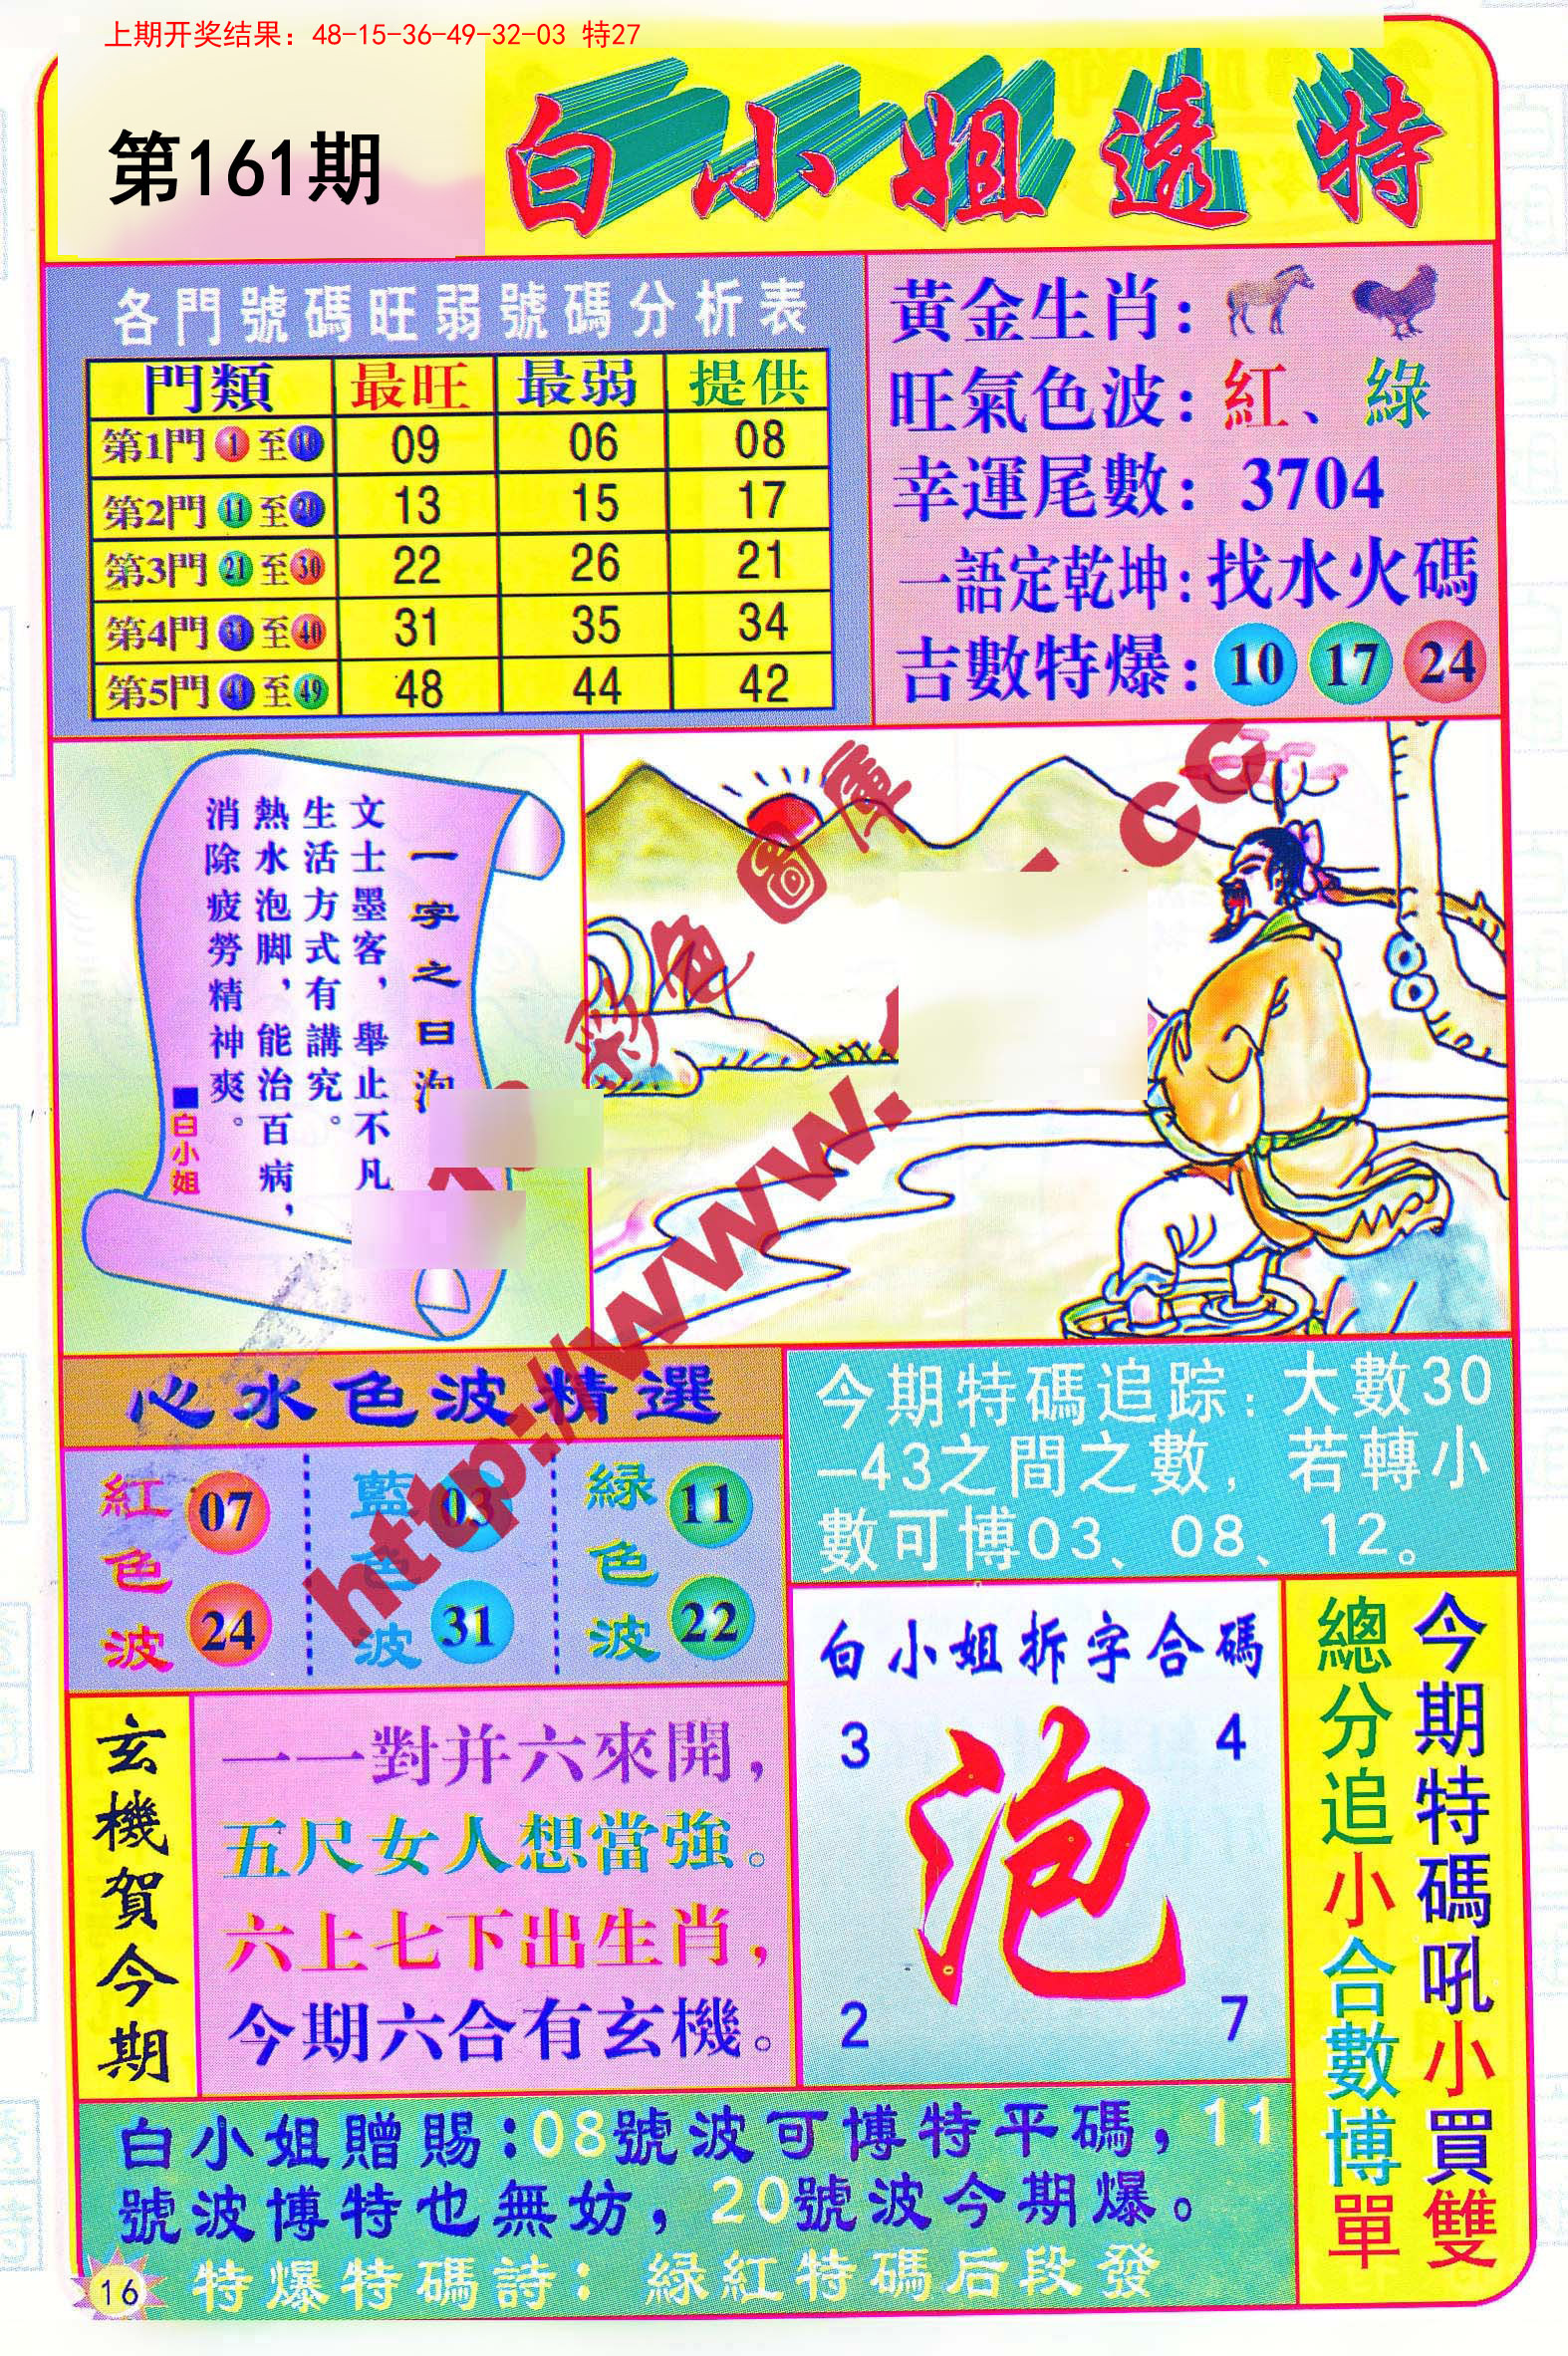 上期开奖结果：48-15-36-49-32-03 特27
第161期
白小姐透特
各門號碼旺弱號碼分析表
門類 最旺 最弱 提供
第1門 1 至 10 09 06 08
第2門 11 至 20 13 15 17
第3門 21 至 30 22 26 21
第4門 31 至 40 31 35 34
第5門 41 至 49 48 44 42
黃金生肖：
旺氣色波：紅、綠
幸運尾數：3704
一語定乾坤：找水火碼
吉數特爆：10 17 24
一字之曰泡
文士墨客，舉止不凡
生活方式有講究。
熱水泡脚，能治百病，
消除疲勞精神爽。
■白小姐
彩色圖庫
http://www.
.cc
心水色波精選
紅色波 07 24
藍色波 03 31
緑色波 11 22
今期特碼追踪：大數30
-43之間之數，若轉小
數可博03、08、12。
白小姐拆字合碼
3 4
泡
2 7
今期特碼吼小買雙
總分追小合數博單
玄機賀今期
一一對并六來開，
五尺女人想當強。
六上七下出生肖，
今期六合有玄機。
白小姐贈賜：08號波可博特平碼，11
號波博特也無妨，20號波今期爆。
特爆特碼詩：緑紅特碼后段發
16